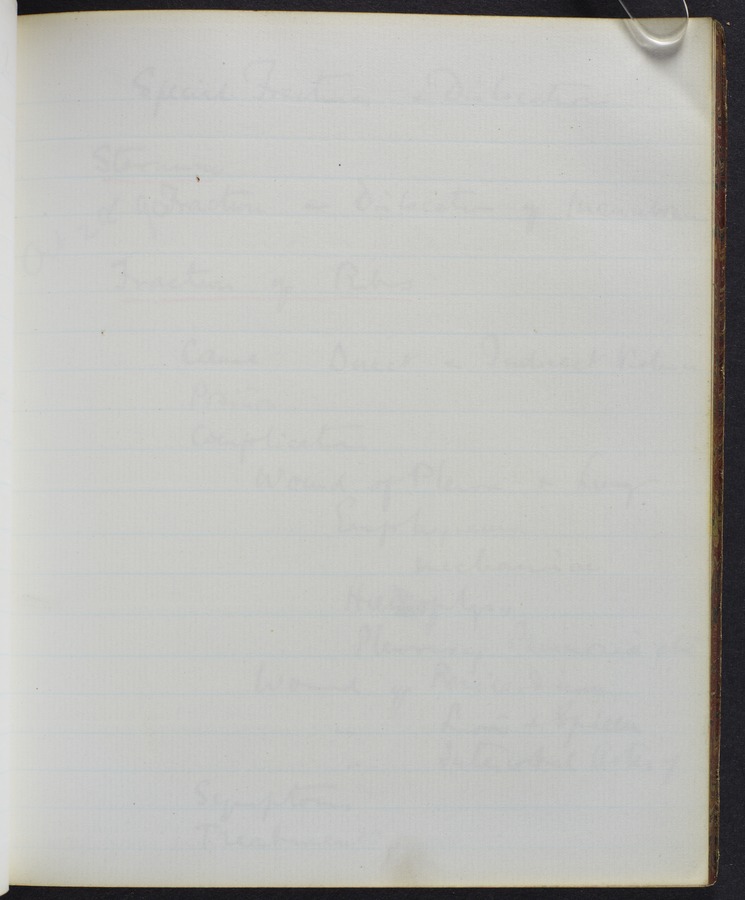 Special Fractures & Dislocations
Sternum
Fracture or Dislocation of
Fracture of Ribs
Cause Direct or Indirect
Complication
Wound of Pleura or Lung
Emphysema
mechanism
Haemoptysis
Pleurisy Pneumonia
Wound of Pericardium
" Liver & Spleen
" Intercostal Artery
Symptoms
Treatment